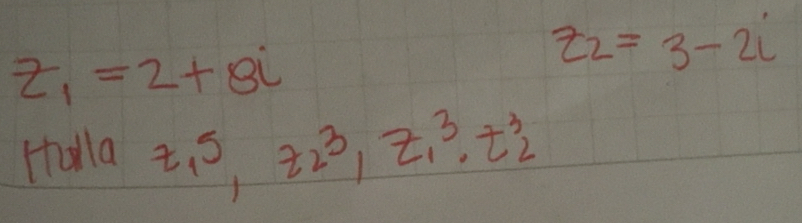 z₁ = 2 + 8i z₂ = 3 - 2i
Halla z₁⁵, z₂³, z₁³ . z₂³